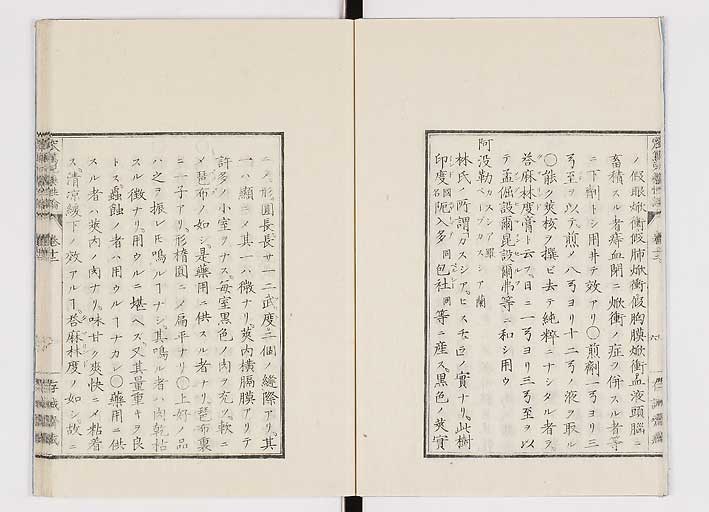 ノ假眼焮衝假肺焮衝假胸膜焮衝血液頭腦ニ
畜積スル者痔血閉ニ焮衝ノ症ヲ併スル者等
ニ下劑トシ用井テ效アリ〇煎劑一弓ヨリ三
弓至ヲ以テ煎メ八弓ヨリ十二弓ノ液ヲ取ル
〇能ク莢核ヲ撰ビ去テ純粹ニナシタル者ヲ
荅麻林度膏ト云フ日ニ一弓ヨリ三弓至ヲ以
テ 設爾昆設爾弗等ニ和シ用ウ
阿没勒 カスシア羅 カスシア蘭
林氏ノ所謂カスシアヒスチュロノ實ナリ此樹
印度國名阨入多同包社同等ニ産ス黒色ノ莢實
ニメ形圓長長サ一二武度二個ノ縫際アリ其
一ハ顯ニメ其一ハ微ナリ莢内横膈膜アリテ
許多ノ小室ヲナス毎室黒色ノ肉ヲ充ツ軟ニ
メ琶布ノ如シ是藥用ニ供スル者ナリ琶布裏
ニ一子アリ形橢圓ニメ扁平ナリ〇上好ノ品
ハ之ヲ振レ𪜈鳴ルヿナシ其鳴ル者ハ肉乾怙
スル徴ナリ用ウルニ堪ヘズ又其量重キヲ良
トス蟲蝕ノ者ハ用ウルヿナカレ〇藥用ニ供
スル者ハ莢内ノ肉ナリ味甘ク爽快ニメ粘着
ス清涼緩下ノ效アルヿ荅麻林度ノ如シ故ニ